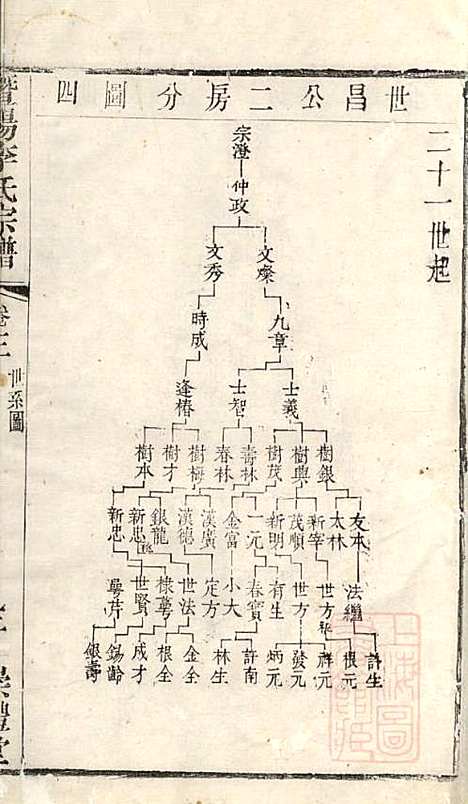 世昌公二房分圖四
二十一世起
宗澄
仲政
文燦 文秀
九章 時成
士義 士智 逢椿
樹銀 樹興 樹茂 壽林 春林 樹梅 樹才 樹本
友本 太林 新宰 茂順 新明 一元 金富 漢廣 漢德 銀龍 新忠 新忠
法繼 世方 世方 有生 春寶 小大 定方 世法 棣萼 世賢 萼芹
許生 根元 祥元 發元 炳元 許南 林生 金全 根全 成才 錫齡 銀壽
暨陽李氏宗譜
卷三
世系圖